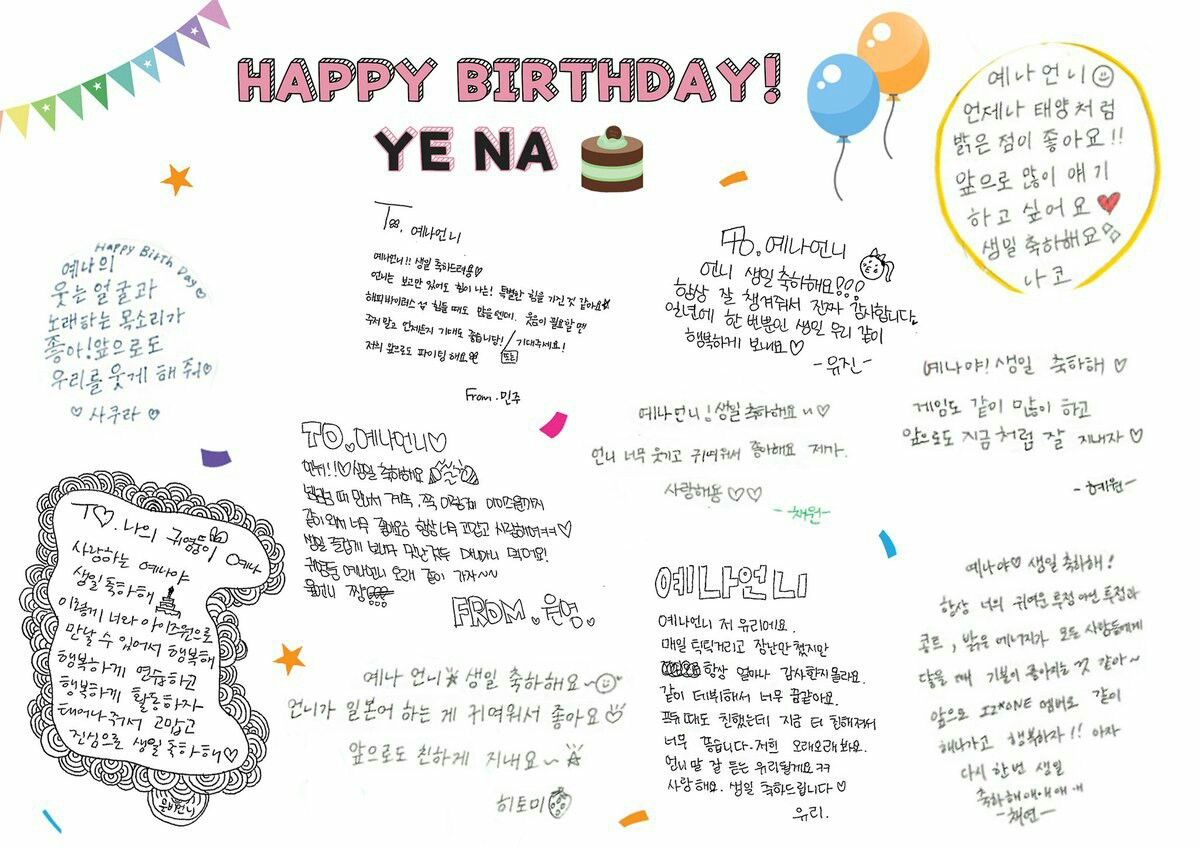 HAPPY BIRTHDAY!
YE NA
예나언니
언제나 태양처럼
밝은 점이 좋아요!!
앞으로 많이 얘기
하고 싶어요
생일 축하해요
나코
Happy Birth Day
예나의
웃는 얼굴과
노래하는 목소리가
좋아! 앞으로도
우리를 웃게 해 줘
사쿠라
To. 예나언니
예나언니!! 생일 축하드려요
언니는 보고만 있어도 힘이 나는! 특별한 힘을 가진 것 같아요
해피바이러스 힘들 때도 많을텐데. 웃음이 필요할 땐
주저 말고 언제든지 기대도 좋습니당! / 기대주세요!
저희 앞으로 파이팅 해요
From. 민주
To. 예나언니
언니 생일 축하해요!!!
항상 잘 챙겨줘서 진짜 감사합니다.
일년에 한 번뿐인 생일 우리 같이
행복하게 보내요
-유진-
예나야! 생일 축하해
게임도 같이 많이 하고
앞으로도 지금처럼 잘 지내자
-혜원-
예나언니! 생일 축하해요
언니 너무 웃기고 귀여워서 좋아해요 제가.
사랑해용
-채원-
TO. 예나언니
언니!! 생일 축하해요
같이 와서 너무 항상 너무 고맙고
생일 즐겁게 보내고 맛난것도
귀염둥 예나언니 오래 같이 가자~~
짱
FROM. 은영.
To. 나의 귀염둥이 예나
사랑하는 예나야
생일 축하해
이렇게 너와 아이즈원으로
만날 수 있어서 행복해
행복하게 연습하고
행복하게 활동하자
태어나줘서 고맙고
진심으로 생일 축하해
은비언니
예나 언니 생일 축하해요~
언니가 일본어 하는 게 귀여워서 좋아요
앞으로도 친하게 지내요~
히토미
예나언니
예나언니 저 유리에요.
매일 틱틱거리고 장난만 쳤지만
항상 얼마나 감사한지 몰라요.
같이 데뷔해서 너무 꿈같아요.
프듀 때도 친했는데 지금 더 친해져서
너무 좋습니다. 저희 오래오래봐요.
언니 말 잘 듣는 유리될게요 ㅋㅋ
사랑해요. 생일 축하드립니다
유리.
예나야 생일 축하해!
항상 너의 귀여운 투정아닌 투정과
콩트, 밝은 에너지가 모든 사람들에게
닿을 때 기분이 좋아지는 것 같아~
앞으로 IZ*ONE 멤버로 같이
해나가고 행복하자!! 아자
다시 한번 생일
축하해애애애애
-채연-